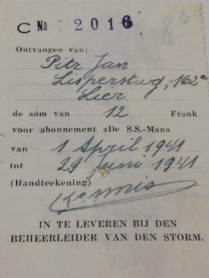 C № 2016
Ontvangen van:
Pitz Jan
Lispersteeg, 162ª
Lier
de som van 12 Frank
voor abonnement «De S.S.-Man»
van 1 April 1941
tot 29 Juni 1941
(Handteekening)
IN TE LEVEREN BIJ DEN
BEHEERLEIDER VAN DEN STORM.